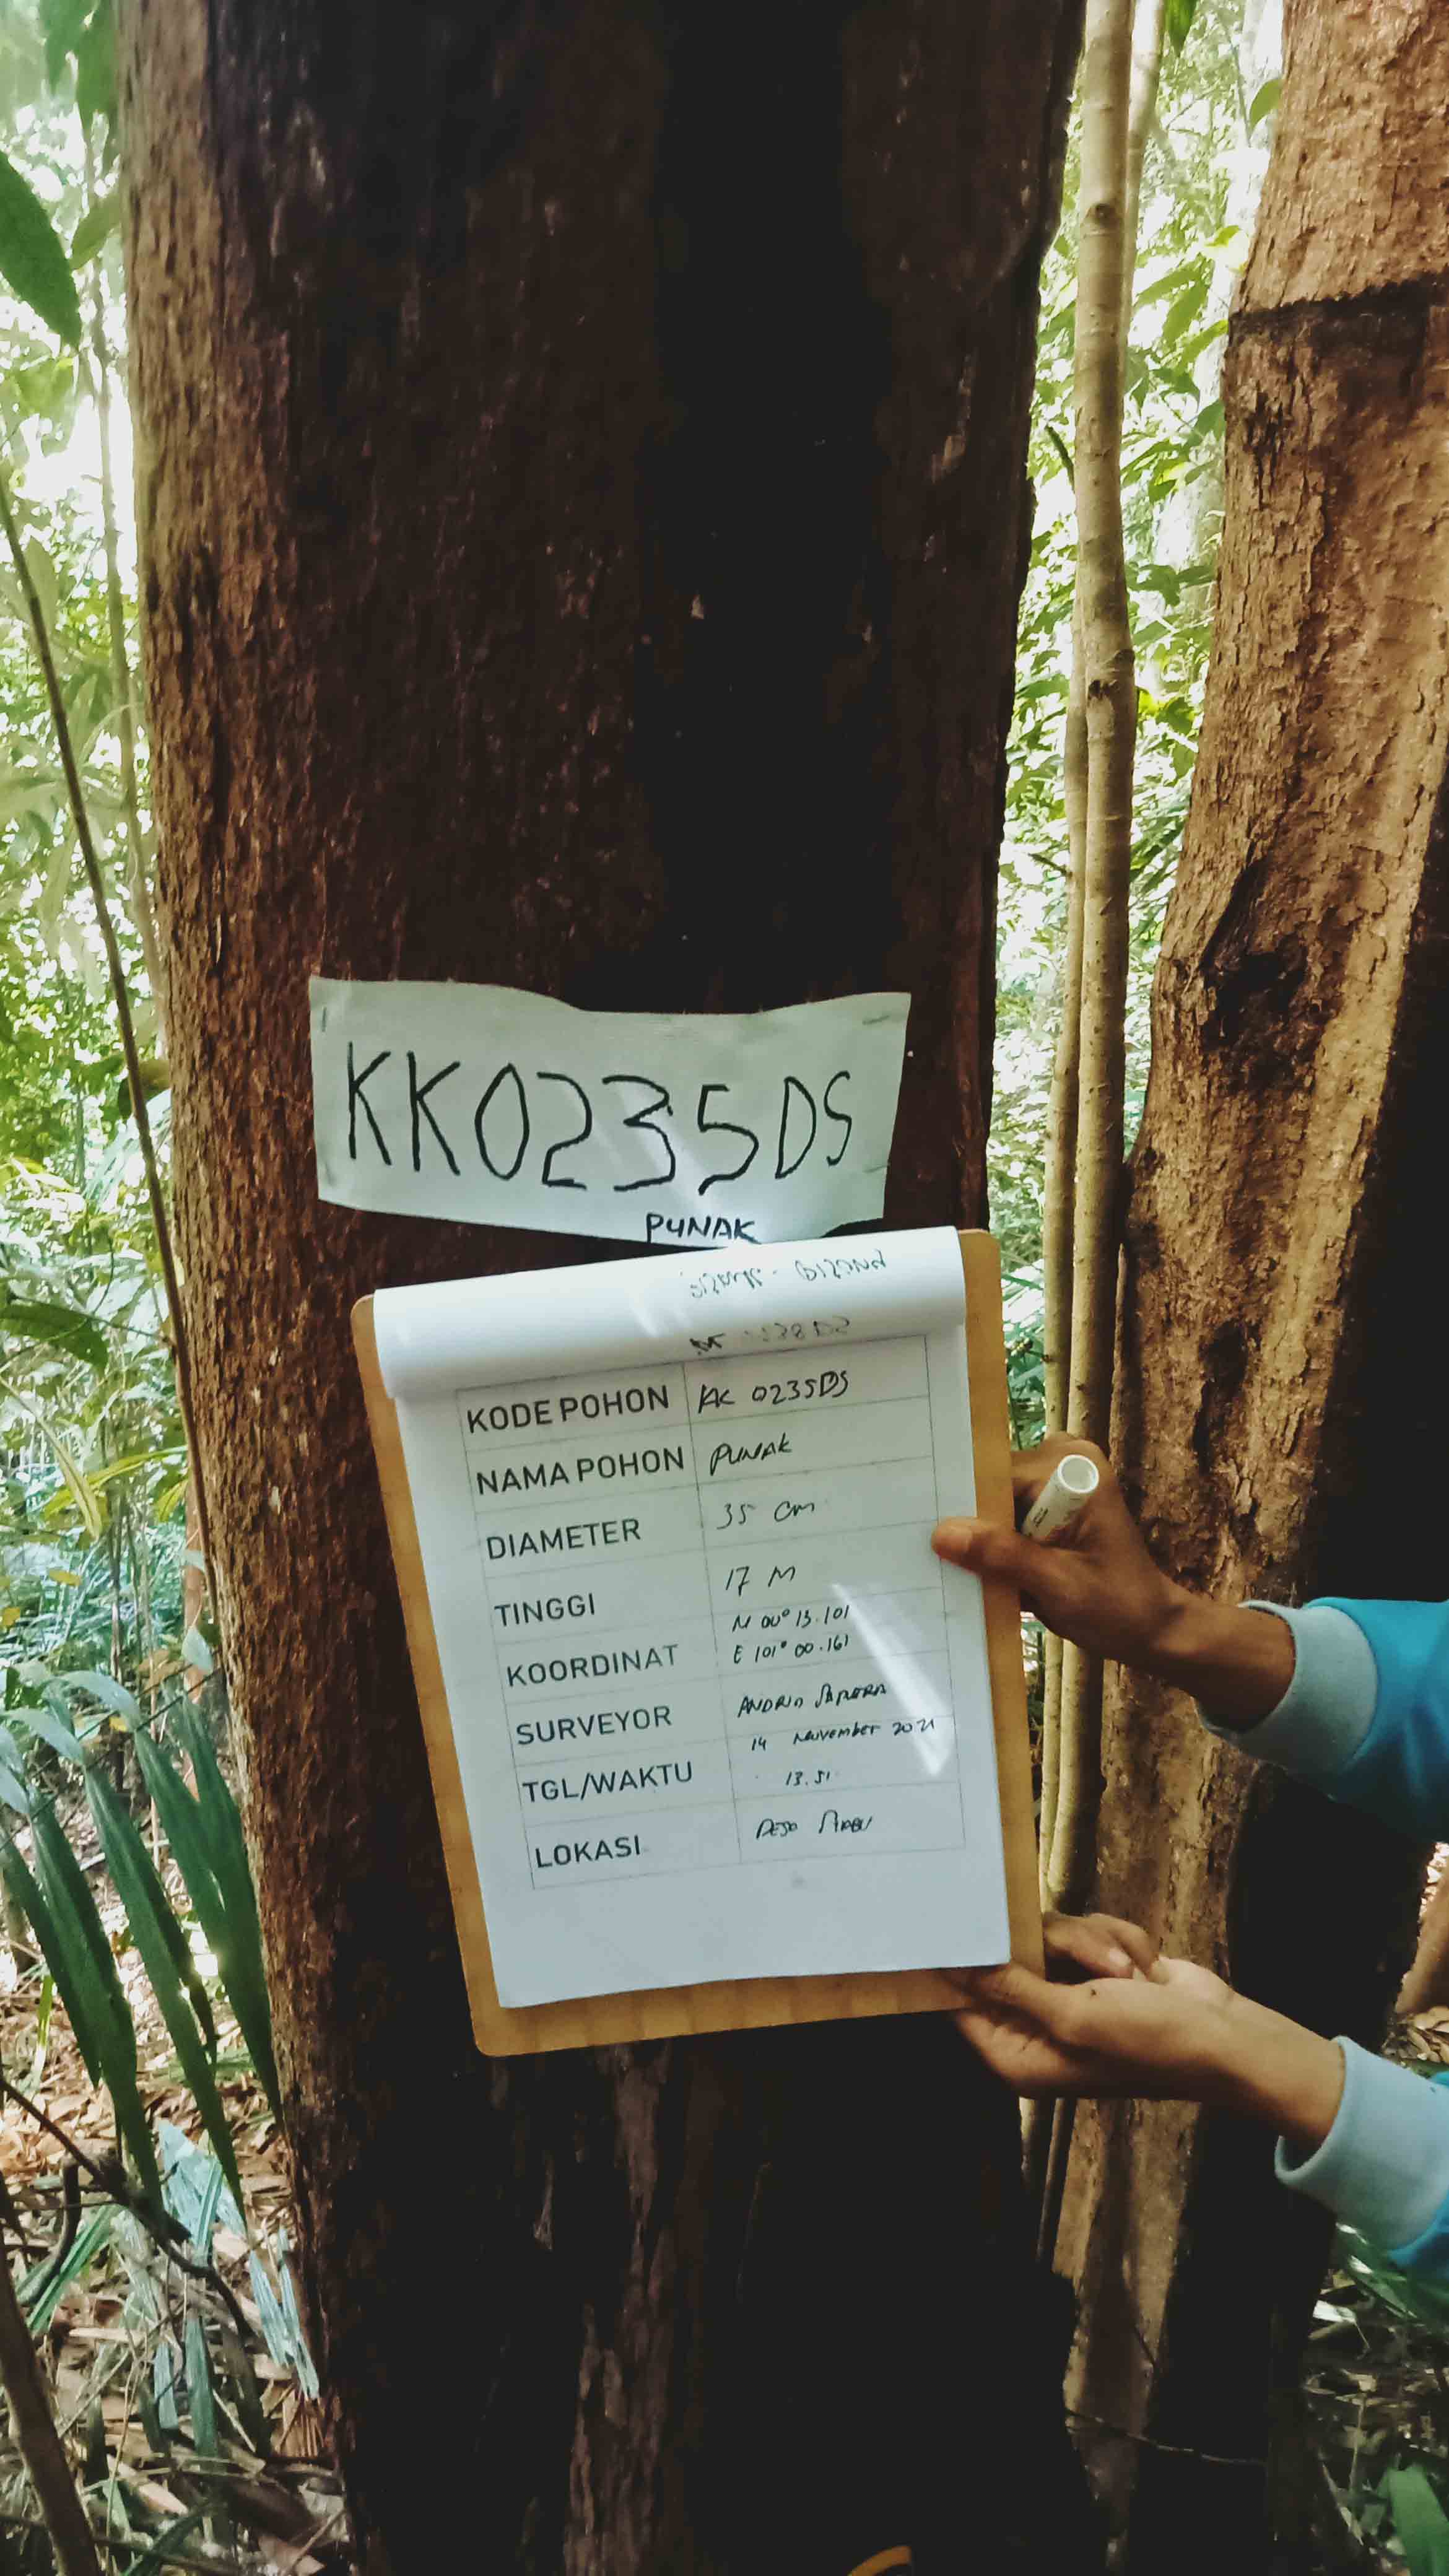 KK0235DS
PUNAK
KODE POHON KK 0235DS
NAMA POHON PUNAK
DIAMETER 35 cm
TINGGI 17 M
KOORDINAT N 00° 13.101
E 101° 00.161
SURVEYOR ANDRIO
TGL/WAKTU 14 November 2021
13.51
LOKASI DESA